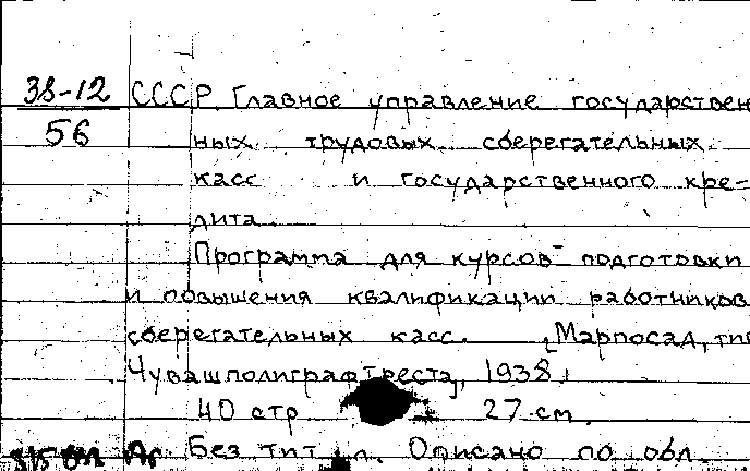 38-12 СССР Главное управление государствен
56 ных трудовых сберегательных
касс и государственного кре-
дита
Программа для курсов подготовки
и повышения квалификации работников
сберегательных касс. [Марпосад, тип
Чувашполиграфтреста], 1938.
40 стр 27 см.
Без тит л. Описано по обл.